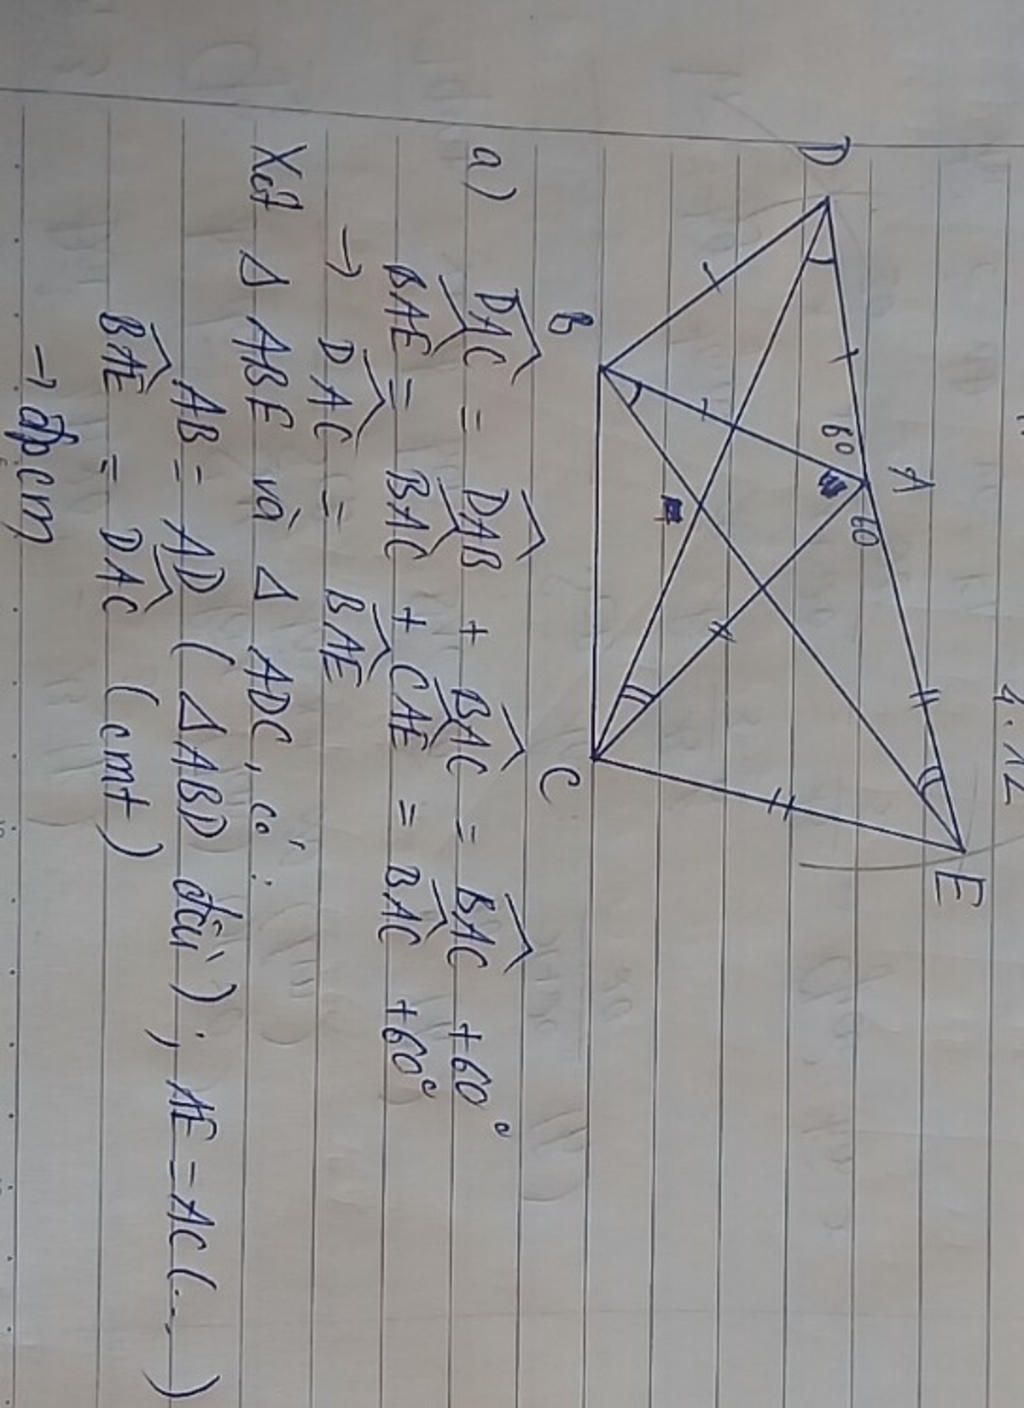 4.12
D
A
E
60
60
B
C
a) DAC = DAB + BAC = BAC + 60°
BAE = BAC + CAE = BAC + 60°
→ DAC = BAE
Xét Δ ABE và Δ ADC, có:
AB = AD (Δ ABD đều); AE = AC (...)
BAE = DAC (cmt)
→ đpcm